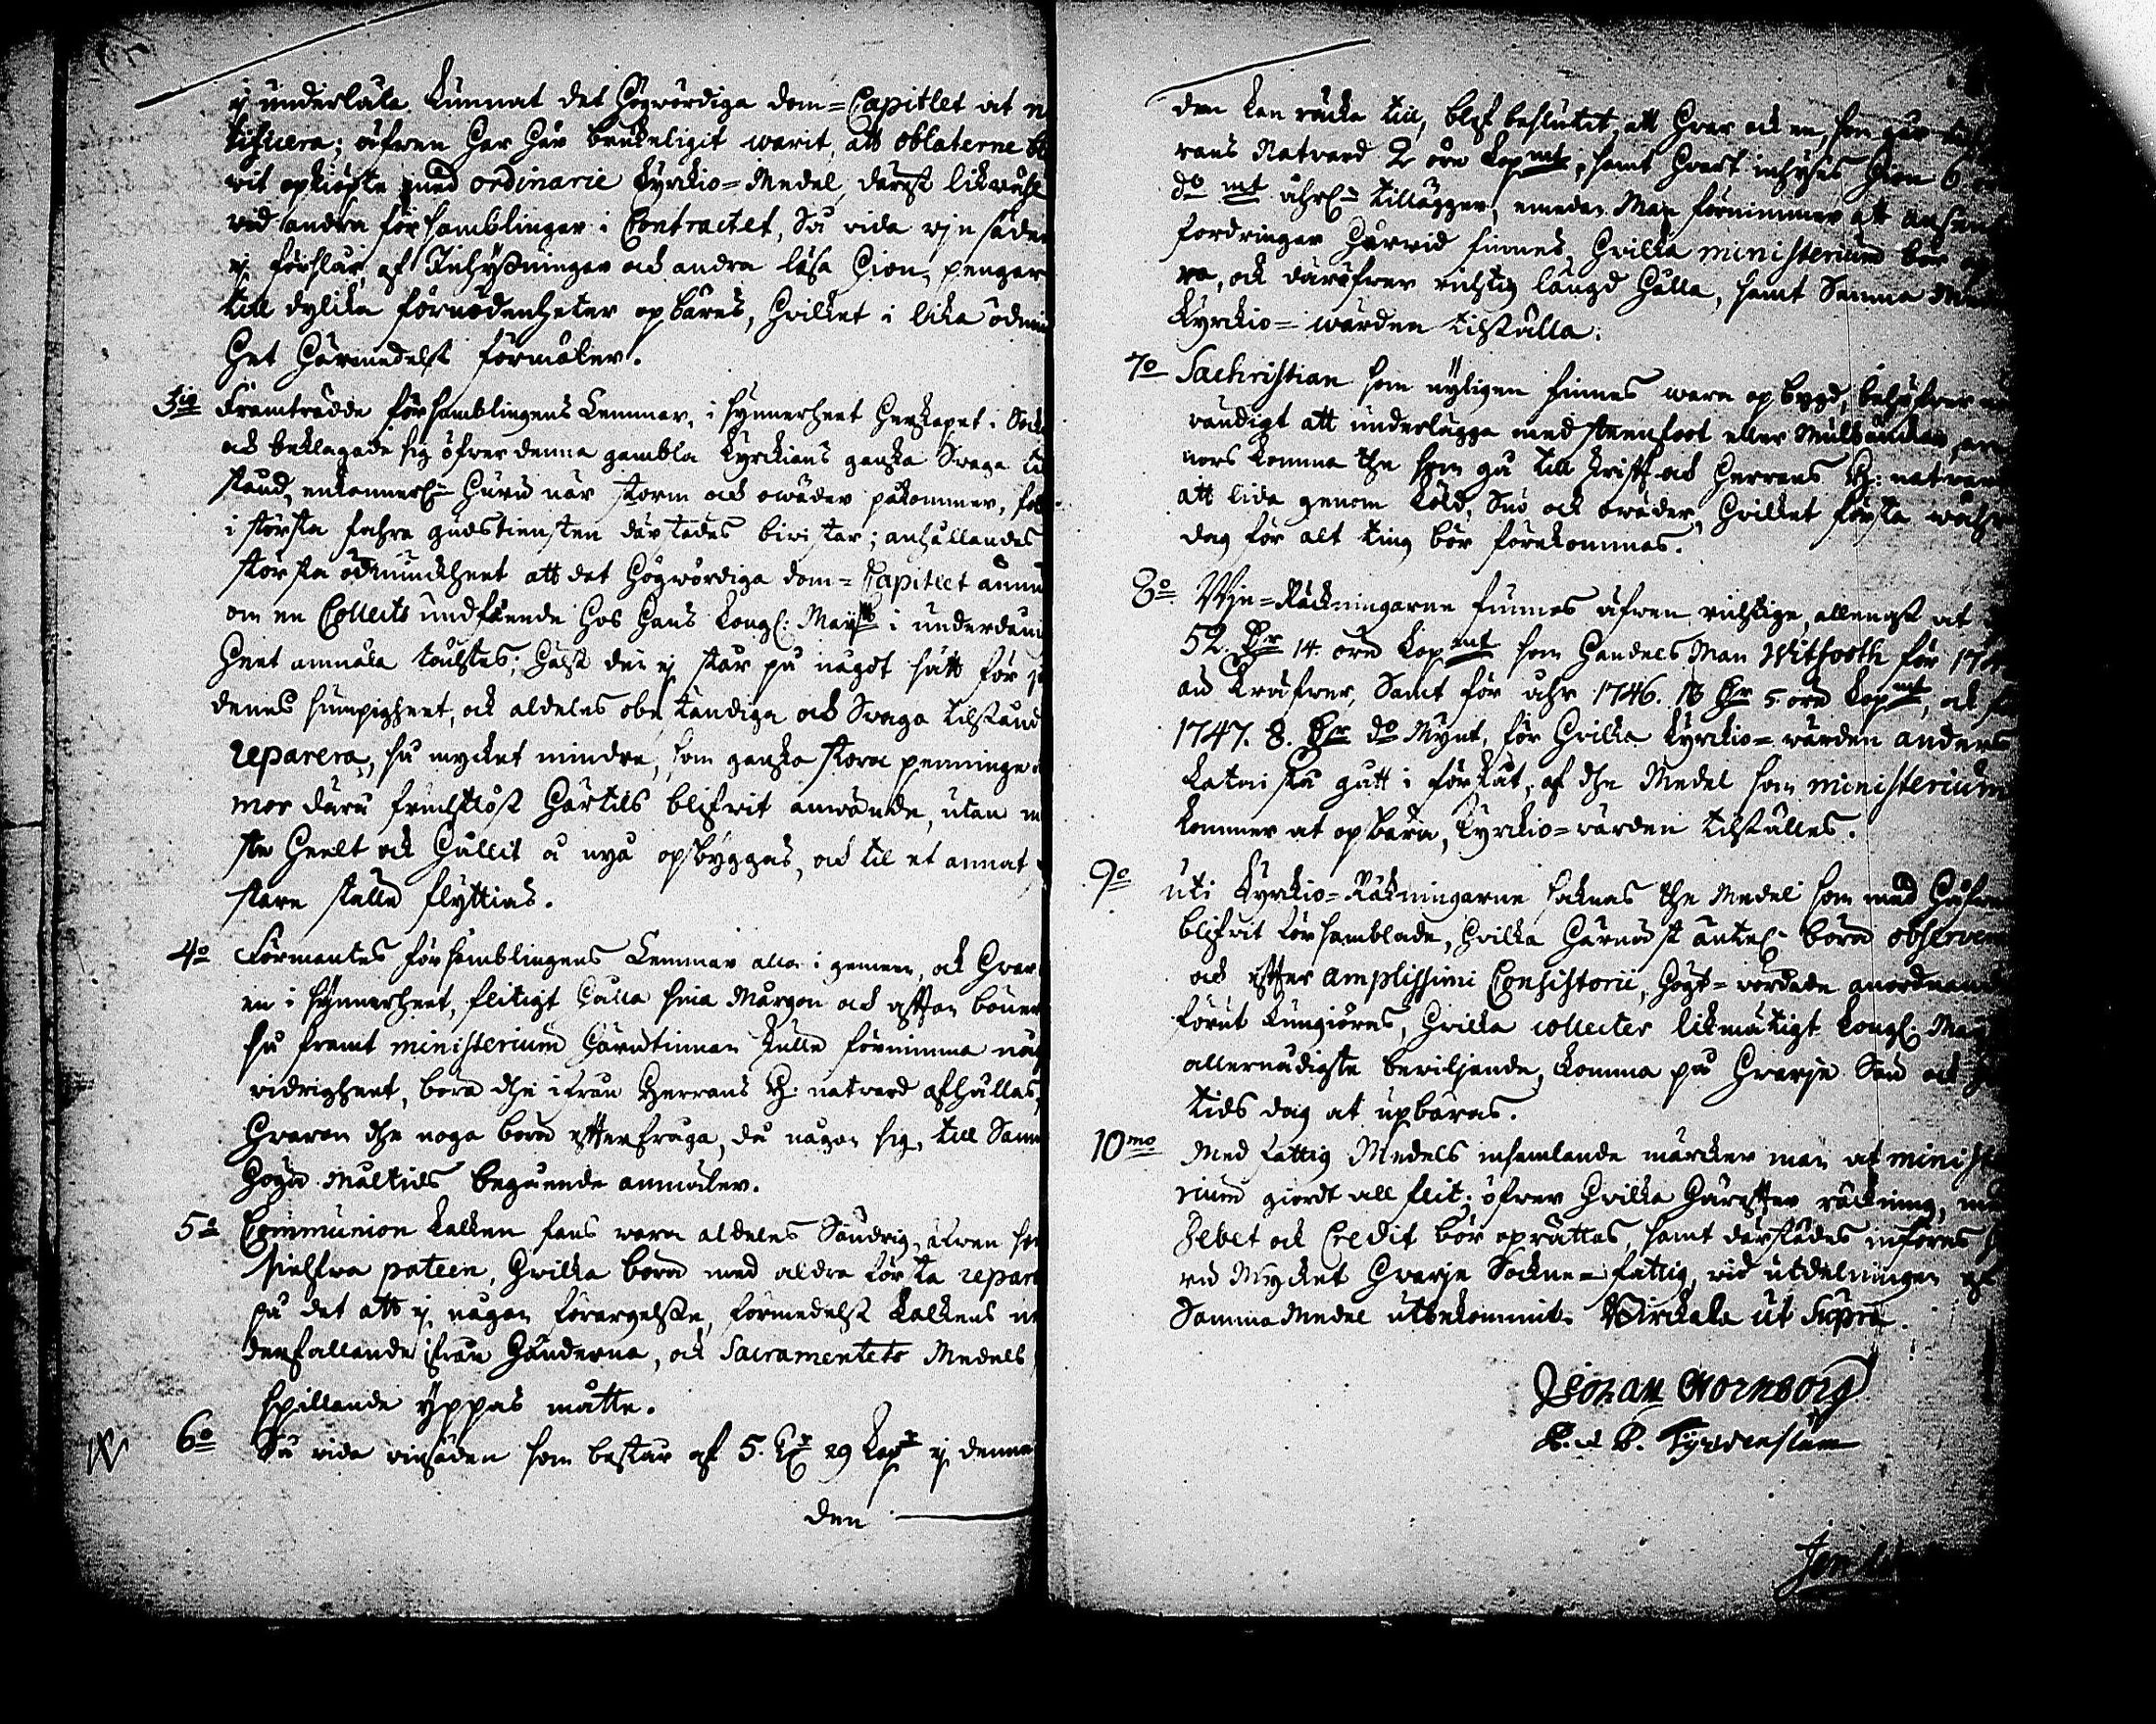 ej underlåta kunnat det Högwördiga dom=Capitlet at n
tificera; äfwen har här brukeligit warit, att oblaterne bl
vit opkiöpte med ordinarie Kyrckio=Medel, därest likwähl
vid andra församblingar i Contractet, Så vida vjn säden
ej förslår, af Inhysningar och andra lösa Hion, pengar
till dylika förnödenheter opbäres, hvilket i lika ödmiu
het härmedelst förmäler.
3io Framträdde församblingens Lemmar, i synnerheet Herskapet i Sock
och beklagade sig öfwer denna gambla Kyrckians ganska Svaga til
stånd, enkannerl: huru när storm och owäder påkommer, folk
i största fahra gudstiensten där städes bivistar; anhållandes
största ödmiuckheet att det Högwördiga dom=Capitlet ännu
om en Collects undfående hos Hans Kongl: Mayst i underdåni
heet anmäla täcktes; hälst den ej står på något sätt för jo
denes sumpigheet, och aldeles obeständiga och Svaga tilstånd
reparera, så mycket mindre, som ganska stora penninge
mor därå fruchtlöst härtils blifvit anwände, utan m
ste heelt och hållit å nyo opbyggas, och til et annat
stare ställe flyttias.
4o Förmantes församblingens Lemmar alla i gemeen, och hvar
en i synnerheet, flitigt hålla sina Morgon och afton böner
så framt ministerium härutinnan skulle förnimma någ
vidrigheet, bora the ifrån Herrans H: natvard afhållas,
hvaron the noga bora efterfråga, då någon sig, till Samm
höga Måltids begående anmäler.
5o Communion kalken fans wara aldeles Söndrig, äfwen so
siukwa pateen, hvilka bora med aldra första repar
på det att ej någon förargelse, förmedelst kalkens un
danfallande ifrån händerna, och Sacramentets Medels
spillande yppas måtte.
6o Så vida vinsäden som består af 5. 29 Kap ej denna
den
den kan räcka till, blef beslutit, att hvar och en, som går
rans Natvard 2 öre kopmt, samt hvart inhyses Hion 6 ör
do mt åhrl: tillägger, emedan Man förnimmer att ansen
fordringar härvid finnes, hvilka ministerium bör op
ra, och däröfwer richtig längd hålla, samt Samma Med
Kyrckio=wärden tilställa.
7o Sachristian som nyligen finnes wara opbygd, behöfwer
vändigt att underlägga med steenfoot eller Mullbänckar, an
nors komma the som gå till skrift och Herrens H: natvar
att lida genom köld, Snö och owäder, hvilket första wåhr
dag för alt ting bör förekommas.
8o Wjn=Räckningarne finnes äfwen richtige, allenast at
52. Dr 14. öre kopmt som Handels Man Witfooth för 174
an kräfwer, Samt för åhr 1746. 18 Dr 5 öre kopmt, och för
1747. 8. Dr do Mynt, för hvilka Kyrckio=wärden anders
gått i förskåt, af the Medel som ministerium
kommer at opbära, Kyrckio=wärden tilställes.
9o Uti Kyrckio=Räkningarne saknas the Medel som med Håfwen
blifvit församblade, hvilka härnäst äntel: böra observer
och efter amplissimi Consistorii, högt=wördade anordnand
förut kungiöras, hvilka collecter likmätigt Kongl: May
allernådigste beviljande, komma på hvarje Sön och h
tids dag at upbäras.
10mo Med Fattig Medels insamlande märcker man at minist
rium giordt all flit; öfwer hvilka härefter räckning, med
Debet och Credit bör oprättas, samt därstädes införes h
ru Mycket hvarje Sockne=fattig, vid utdelningen af
Samma Medel utbekommit. Wirckala ut supra.
Johan Hornborg
P. & P. Tyrvenslum